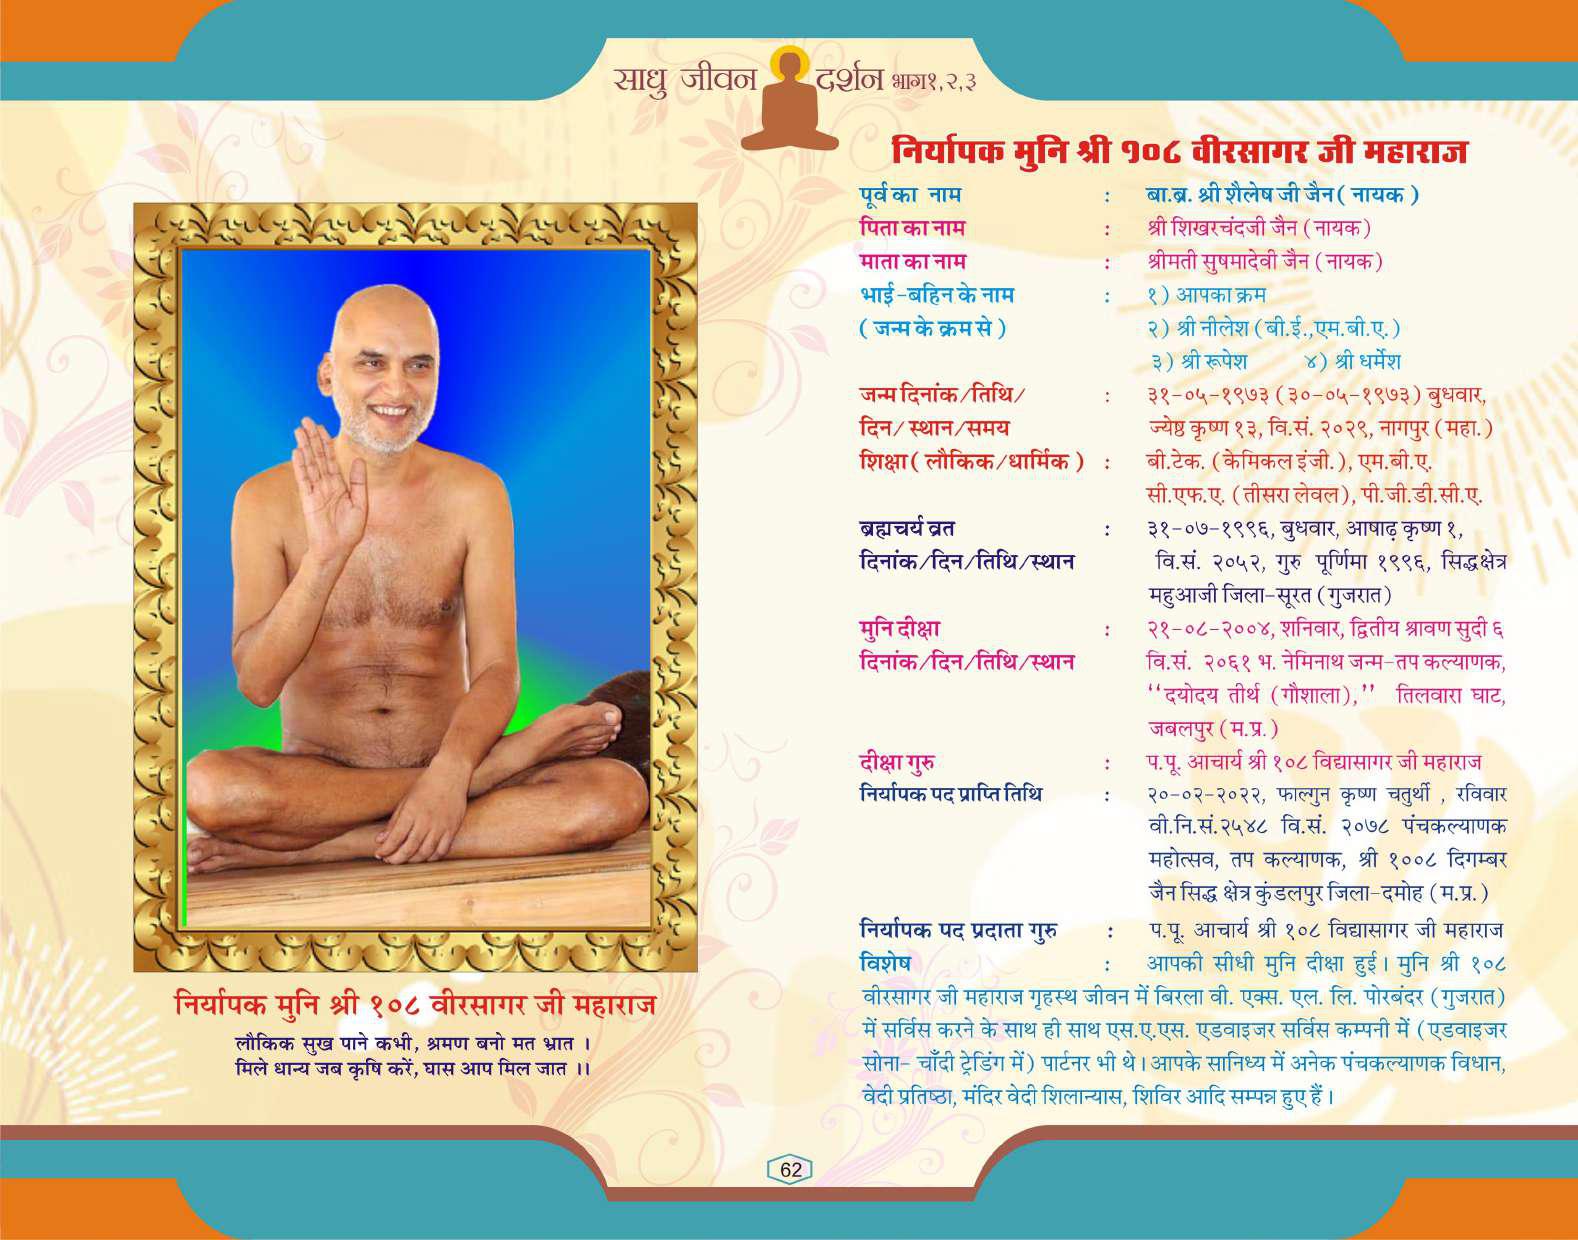 साधु जीवन दर्शन भाग१,२,३
निर्यापक मुनि श्री १०८ वीरसागर जी महाराज
पूर्व का नाम : बा.ब्र. श्री शैलेष जी जैन( नायक )
पिता का नाम : श्री शिखरचंदजी जैन (नायक)
माता का नाम : श्रीमती सुषमादेवी जैन (नायक)
भाई-बहिन के नाम : १) आपका क्रम
( जन्म के क्रम से ) २) श्री नीलेश (बी.ई.,एम.बी.ए.)
३) श्री रूपेश ४) श्री धर्मेश
जन्म दिनांक/तिथि/ : ३१-०५-१९७३ (३०-०५-१९७३) बुधवार,
दिन/ स्थान/समय ज्येष्ठ कृष्ण १३, वि.सं. २०२९, नागपुर (महा.)
शिक्षा( लौकिक/धार्मिक ) : बी.टेक. (केमिकल इंजी.), एम.बी.ए.
सी.एफ.ए. (तीसरा लेवल), पी.जी.डी.सी.ए.
ब्रह्मचर्य व्रत : ३१-०७-१९९६, बुधवार, आषाढ़ कृष्ण १,
दिनांक/दिन/तिथि/स्थान वि.सं. २०५२, गुरु पूर्णिमा १९९६, सिद्धक्षेत्र
महुआजी जिला-सूरत (गुजरात)
मुनि दीक्षा : २१-०८-२००४, शनिवार, द्वितीय श्रावण सुदी ६
दिनांक/दिन/तिथि/स्थान वि.सं. २०६१ भ. नेमिनाथ जन्म-तप कल्याणक,
‘‘दयोदय तीर्थ (गौशाला),’’ तिलवारा घाट,
जबलपुर (म.प्र.)
दीक्षा गुरु : प.पू. आचार्य श्री १०८ विद्यासागर जी महाराज
निर्यापक पद प्राप्ति तिथि : २०-०२-२०२२, फाल्गुन कृष्ण चतुर्थी , रविवार
वी.नि.सं.२५४८ वि.सं. २०७८ पंचकल्याणक
महोत्सव, तप कल्याणक, श्री १००८ दिगम्बर
जैन सिद्ध क्षेत्र कुंडलपुर जिला-दमोह (म.प्र.)
निर्यापक पद प्रदाता गुरु : प.पू. आचार्य श्री १०८ विद्यासागर जी महाराज
विशेष : आपकी सीधी मुनि दीक्षा हुई। मुनि श्री १०८
वीरसागर जी महाराज गृहस्थ जीवन में बिरला वी. एक्स. एल. लि. पोरबंदर (गुजरात)
में सर्विस करने के साथ ही साथ एस.ए.एस. एडवाइजर सर्विस कम्पनी में (एडवाइजर
सोना- चाँदी ट्रेडिंग में) पार्टनर भी थे। आपके सानिध्य में अनेक पंचकल्याणक विधान,
वेदी प्रतिष्ठा, मंदिर वेदी शिलान्यास, शिविर आदि सम्पन्न हुए हैं।
निर्यापक मुनि श्री १०८ वीरसागर जी महाराज
लौकिक सुख पाने कभी, श्रमण बनो मत भ्रात ।
मिले धान्य जब कृषि करें, घास आप मिल जात ।।
62